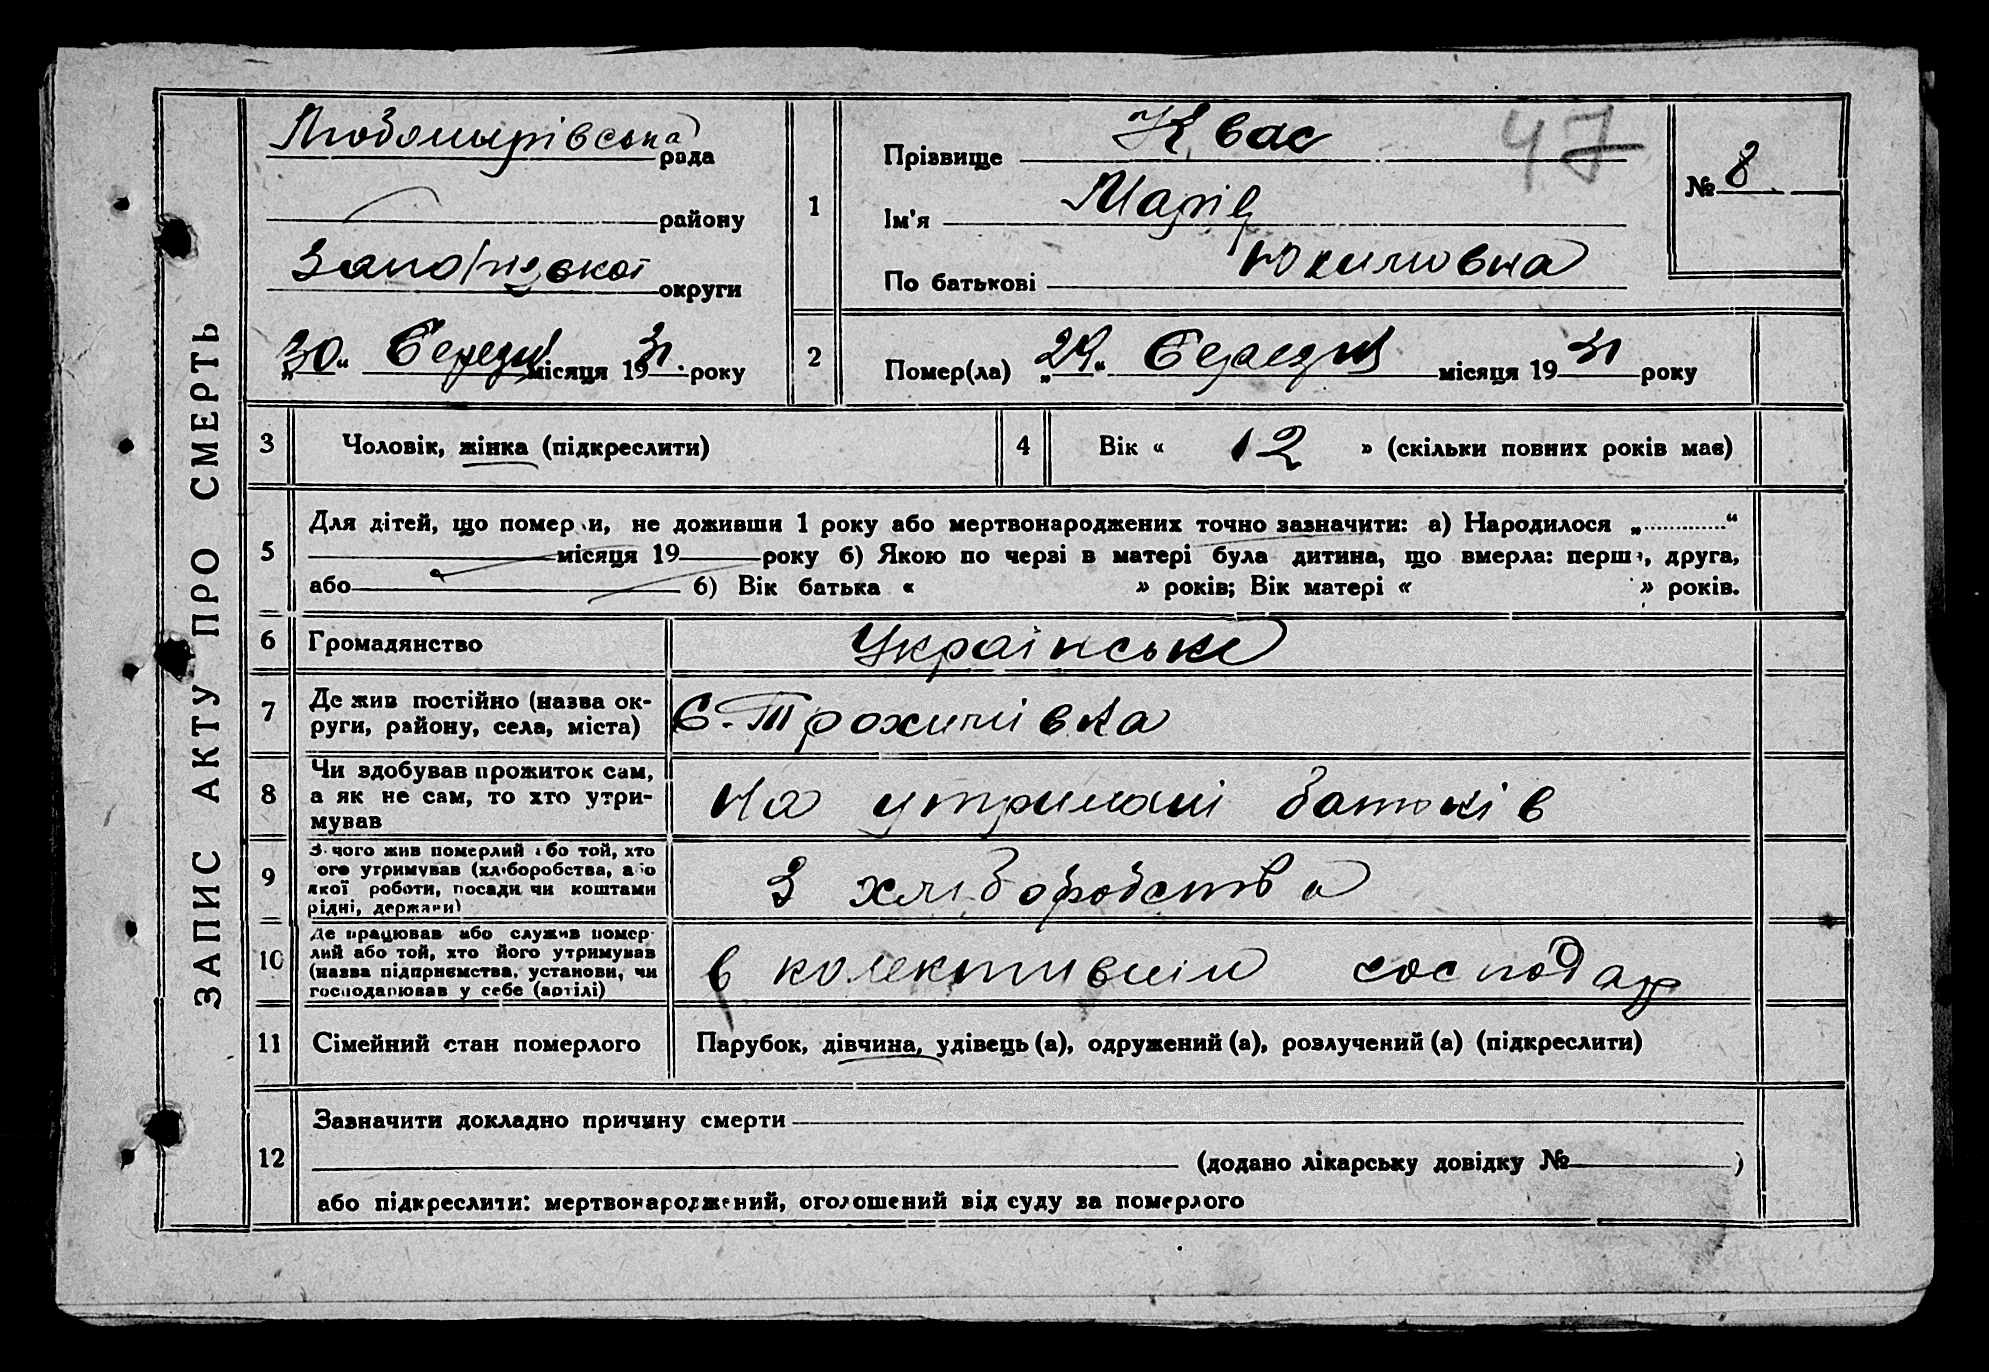 ЗАПИС АКТУ ПРО СМЕРТЬ
Любомирівська рада
району
Запоріжської округи
„30“ Березня місяця 1931. року
1
Прізвище Квас
47
Ім'я Марія
По батькові Юхимовна
№ 8
2
Помер(ла) „29“ Березня місяця 1931 року
3 Чоловік, жінка (підкреслити)
4 Вік « 12 » (скільки повних років має)
5
Для дітей, що померли, не доживши 1 року або мертвонароджених точно зазначити: а) Народилося „.............“
місяця 19 року б) Якою по черзі в матері була дитина, що вмерла: перша, друга,
або б) Вік батька « » років; Вік матері « » років.
6 Громадянство Українське
7 Де жив постійно (назва ок-
руги, району, села, міста)
С-Трохимівка
8 Чи здобував прожиток сам,
а як не сам, то хто утри-
мував
на утримані батьків
9 З чого жив померлий або той, хто
ого утримував (хліборобства, або
якої роботи, посади чи коштами
рідні, держави)
З хліборобства
10 Де працював або служив помер-
лий або той, хто його утримував
(назва підприємства, установи, чи
господарював у себе (артілі)
в колективнім господар
11 Сімейний стан померлого Парубок, дівчина, удівець (а), одружений (а), розлучений (а) (підкреслити)
12
Зазначити докладно причину смерти
(додано лікарську довідку № )
або підкреслити: мертвонароджений, оголошений від суду за померлого